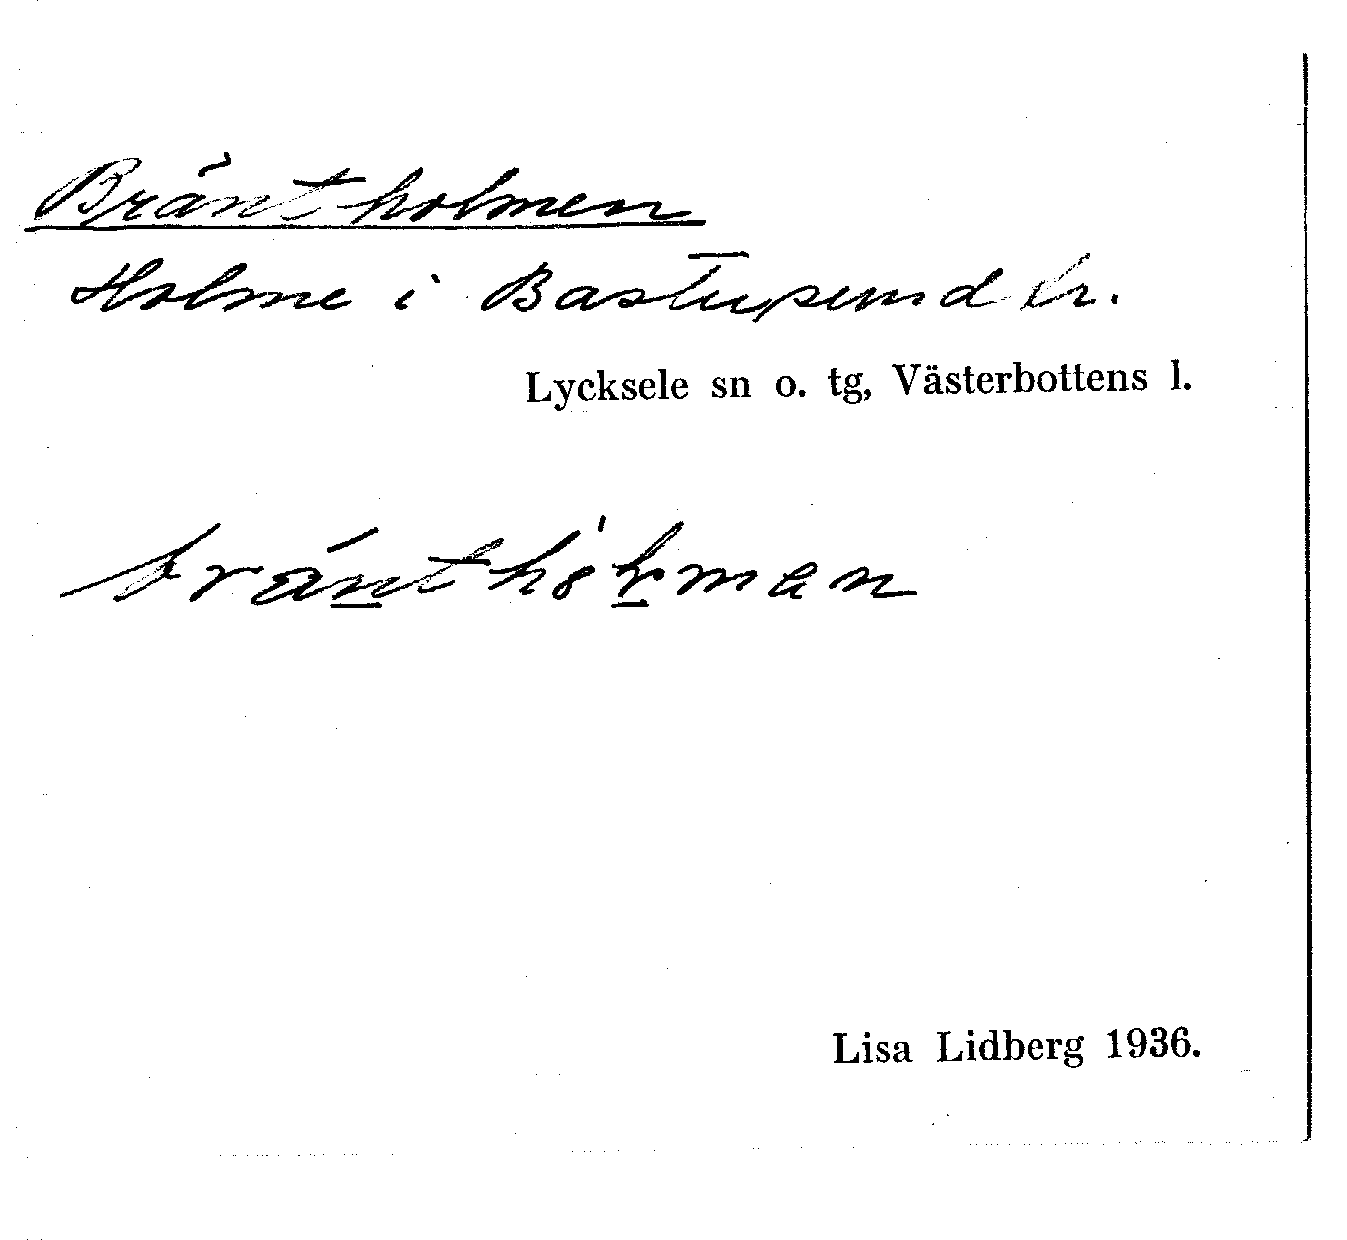 Bräntholmen
Holme i Bastusund br.
Lycksele sn o. tg, Västerbottens l.
Lisa Lidberg 1936.